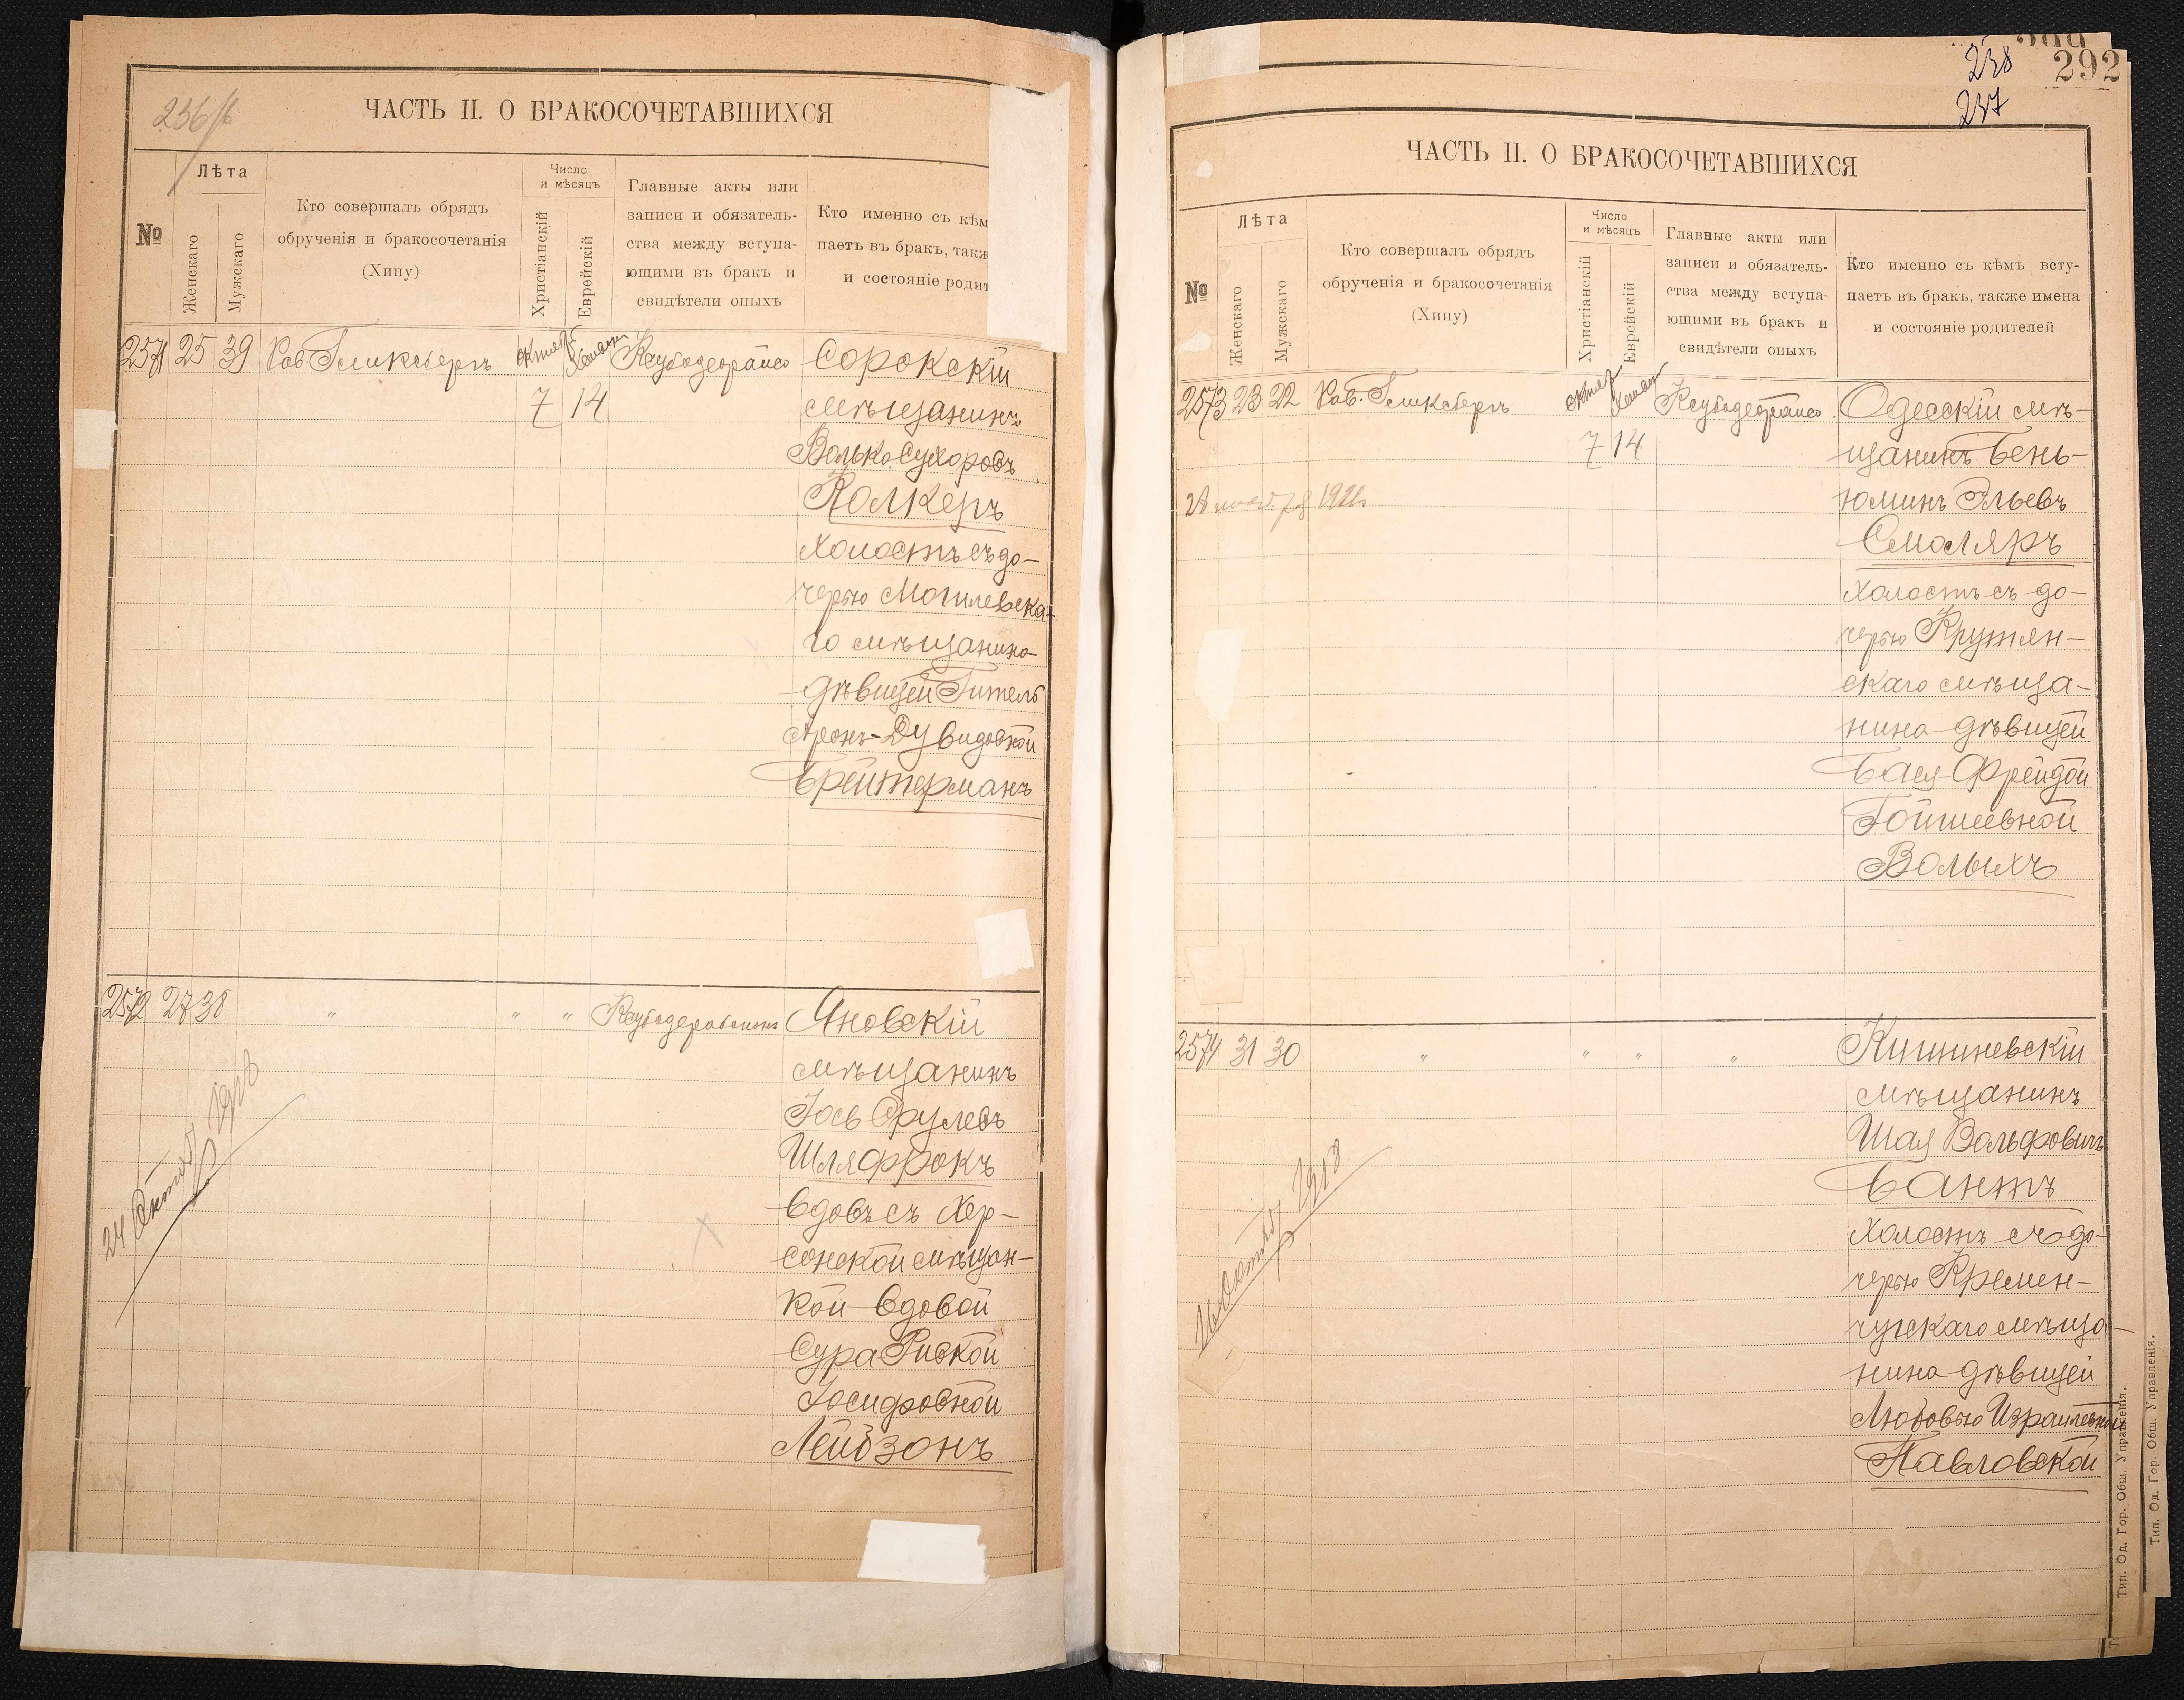 ЧАСТЬ II. О БРАКОСОЧЕТАВШИХСЯ
№
Лѣта
Женскаго
Мужскаго
Кто совершалъ обрядъ
обрученія и бракосочетанія
(Хипу)
Число
и мѣсяцъ
Христіанскій
Еврейскій
Главные акты или
записи и обязатель-
ства между вступа-
ющими въ бракъ и
свидѣтели оныхъ
Кто именно съ кѣм
паетъ въ бракъ, такж
и состояніе родит
2571 25 39 Рав. Гликсбергъ октяб 7 14 Сорокскій
мѣщанинъ
Волько Сухоровъ
Колкеръ
холостъ съ до-
черью Могилевска-
го мѣщанина
дѣвицей Гитель
Аронъ-Дувидовной
Брейтерманъ
2572 27 38 " " " Яновскій
мѣщанинъ
Іось Срулевъ
Шляфрокъ
вдовъ съ Хер-
сонской мѣщан-
кой вдовой
Сура Ривкой
Іосифовной
Лейбзонъ
24 Октяб 1918
238
237
292
ЧАСТЬ II. О БРАКОСОЧЕТАВШИХСЯ
№
Лѣта
Женскаго
Мужскаго
Кто совершалъ обрядъ
обрученія и бракосочетанія
(Хипу)
Число
и мѣсяцъ
Христіанскій
Еврейскій
Главные акты или
записи и обязатель-
ства между вступа-
ющими въ бракъ и
свидѣтели оныхъ
Кто именно съ кѣмъ всту-
паетъ въ бракъ, также имена
и состояніе родителей
2573 23 22 Рав. Гликсбергъ октяб 7 14 Одесскій мѣ-
щанинъ Бень-
юминъ Эльевъ
Смоляръ
холостъ съ до-
черью Крутян-
скаго мѣща-
нина дѣвицей
Бася-Фрейдой
Гойшіевной
Волыхъ
2574 31 30 " " " " Кишиневскій
мѣщанинъ
Шая Вольфовичъ
Бантъ
холостъ съ до-
черью Кремен-
чугскаго мѣща-
нина дѣвицей
Любовью Израилевной
Павловской
Октяб 1918
Тип. Од. Гор. Общ. Управленія.
Тип. Од. Гор. Общ. Управленія.